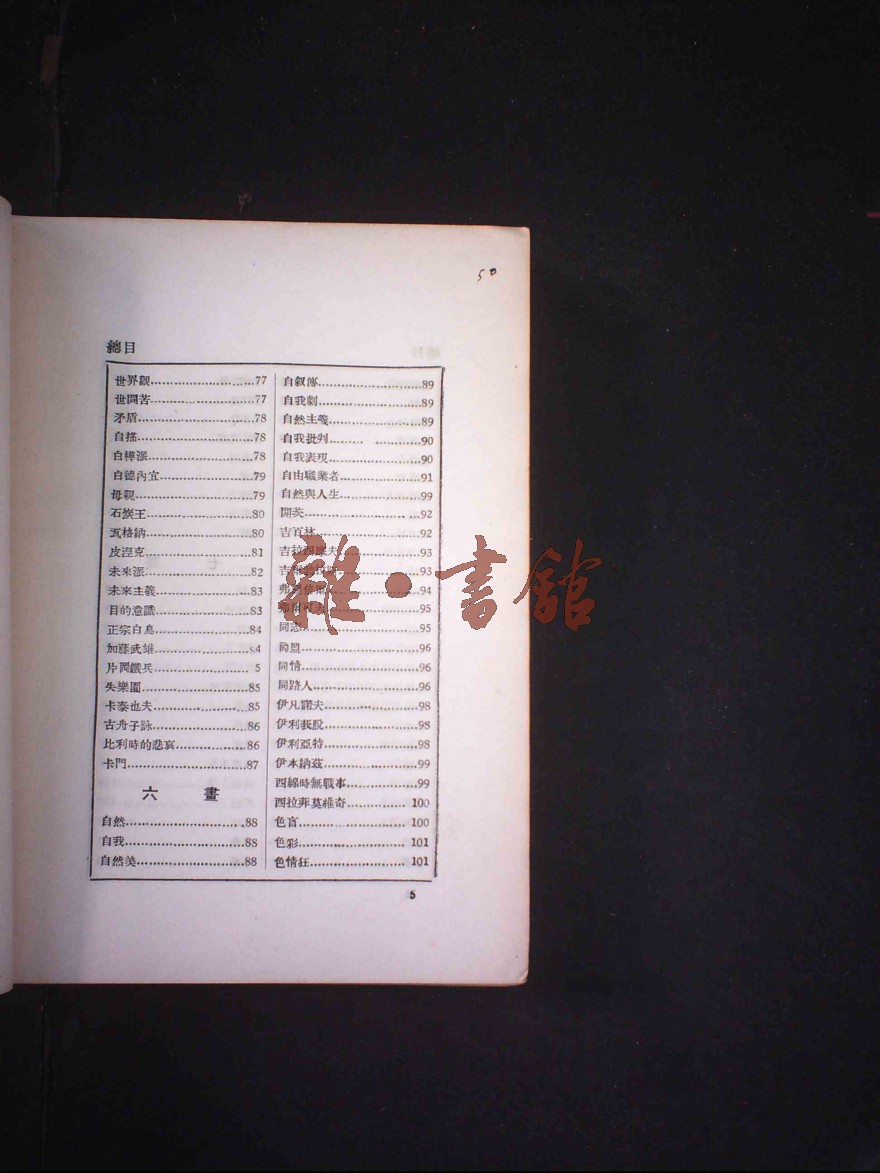 50
總目
世界觀............77
世間苦............77
矛盾............78
自描............78
白樺派............78
白德內宜............79
母親............79
石炭王............80
瓦格納............80
皮涅克............81
未來派............82
未來主義............83
目的意識............83
正宗白鳥............84
加藤武雄............84
片岡鐵兵............ 5
失樂園............85
卡泰也夫............85
古舟子詠............86
比利時的悲哀............86
卡門............87
六 畫
自然............88
自我............88
自然美............88
自叙傳............89
自我劇............89
自然主義............89
自我批判............90
自我表現............90
自由職業者............91
自然與人生............99
開茨............92
吉百林............92
吉拉西摩夫............93
............93
............94
............95
同志............95
同盟............96
同情............96
同路人............96
伊凡諾夫............98
伊利裴脫............98
伊利亞特............98
伊本納茲............99
西線時無戰事............99
西拉菲莫維奇............100
色盲............100
色彩............101
色情狂............101
5
雜·書館